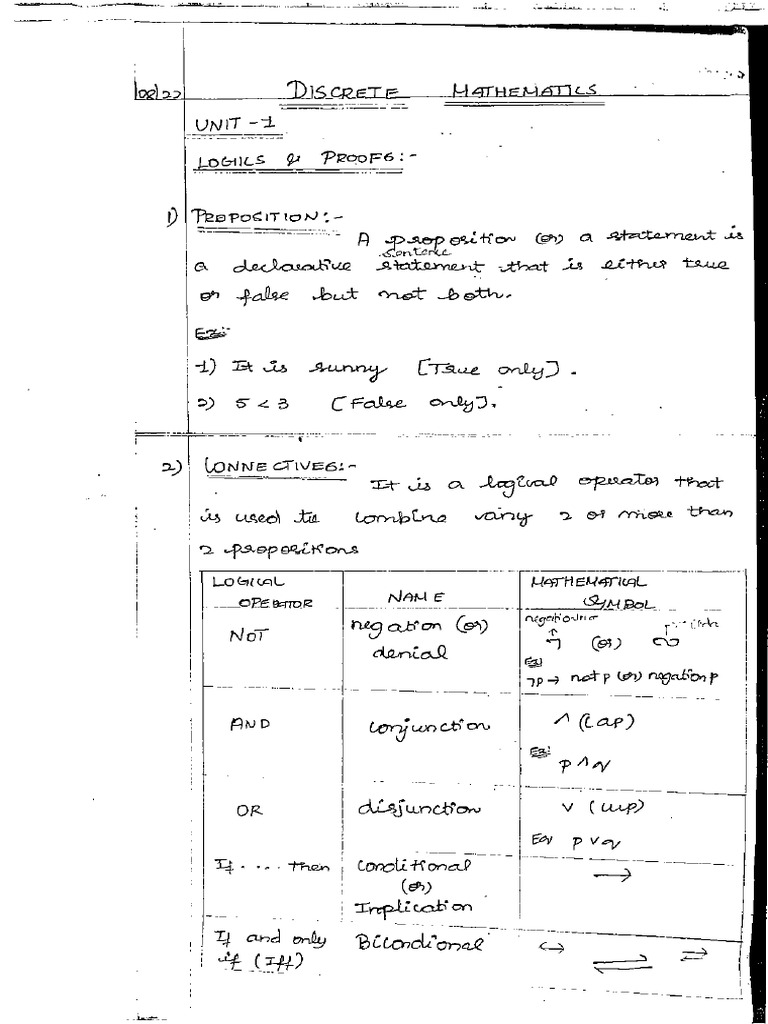 08/22 DISCRETE MATHEMATICS
UNIT - 1
LOGIICS & PROOFS:-
1) PROPOSITION:-
A proposition (or) a statement is
sentence
a declarative statement that is either true
or false but not both.
Ex:-
1) It is sunny [True only].
2) 5 < 3 [False only].
2) CONNECTIVES:-
It is a logical operator that
is used to combine 2 or more than
2 propositions
LOGICAL OPERATOR NAME MATHEMATICAL SYMBOL
NOT negation (or) denial negation ¬ (or) ∽
Ex: ¬p → not p (or) negation p
AND conjunction ∧ (cap)
Ex: p ∧ q
OR disjunction ∨ (cup)
Ex p ∨ q
If .... then Conditional (or) Implication →
If and only if (Iff) Bicondional ↔ ⇌ ⇌